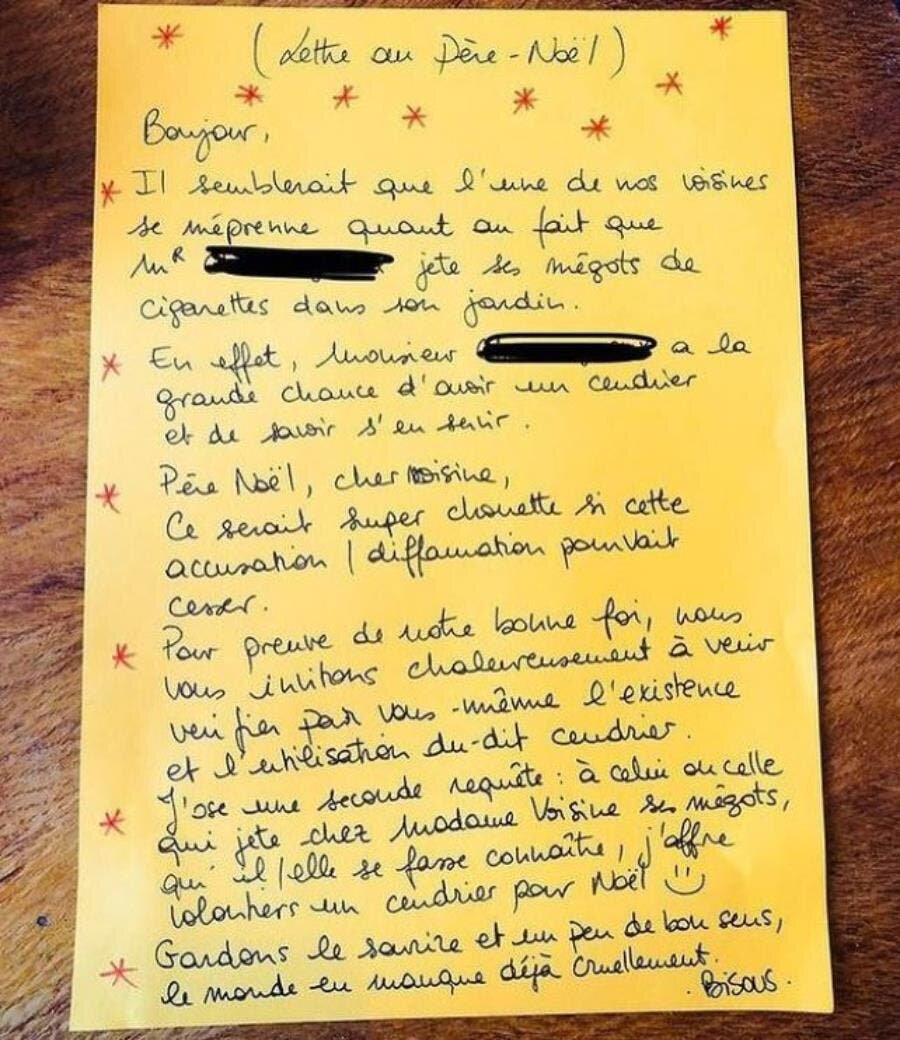 (Lettre au Père-Noël)
Bonjour,
Il semblerait que l'une de nos voisines
se méprenne quant au fait que
Mr jete ses mégots de
cigarettes dans son jardin.
En effet, Monsieur a la
grande chance d'avoir un cendrier
et de savoir s'en servir.
Père Noël, cher voisine,
Ce serait super chouette si cette
accusation / diffamation pouvait
cesser.
Pour preuve de notre bonne foi, nous
vous invitons chaleureusement à venir
verifier par vous-même l'existence
et l'utilisation du-dit cendrier.
J'ose une seconde requête : à celui ou celle
qui jete chez Madame Voisine ses mégots,
qu'il/elle se fasse connaître, j'offre
volontiers un cendrier pour Noël
Gardons le sourire et un peu de bon sens,
le monde en manque déjà cruellement.
. Bisous .